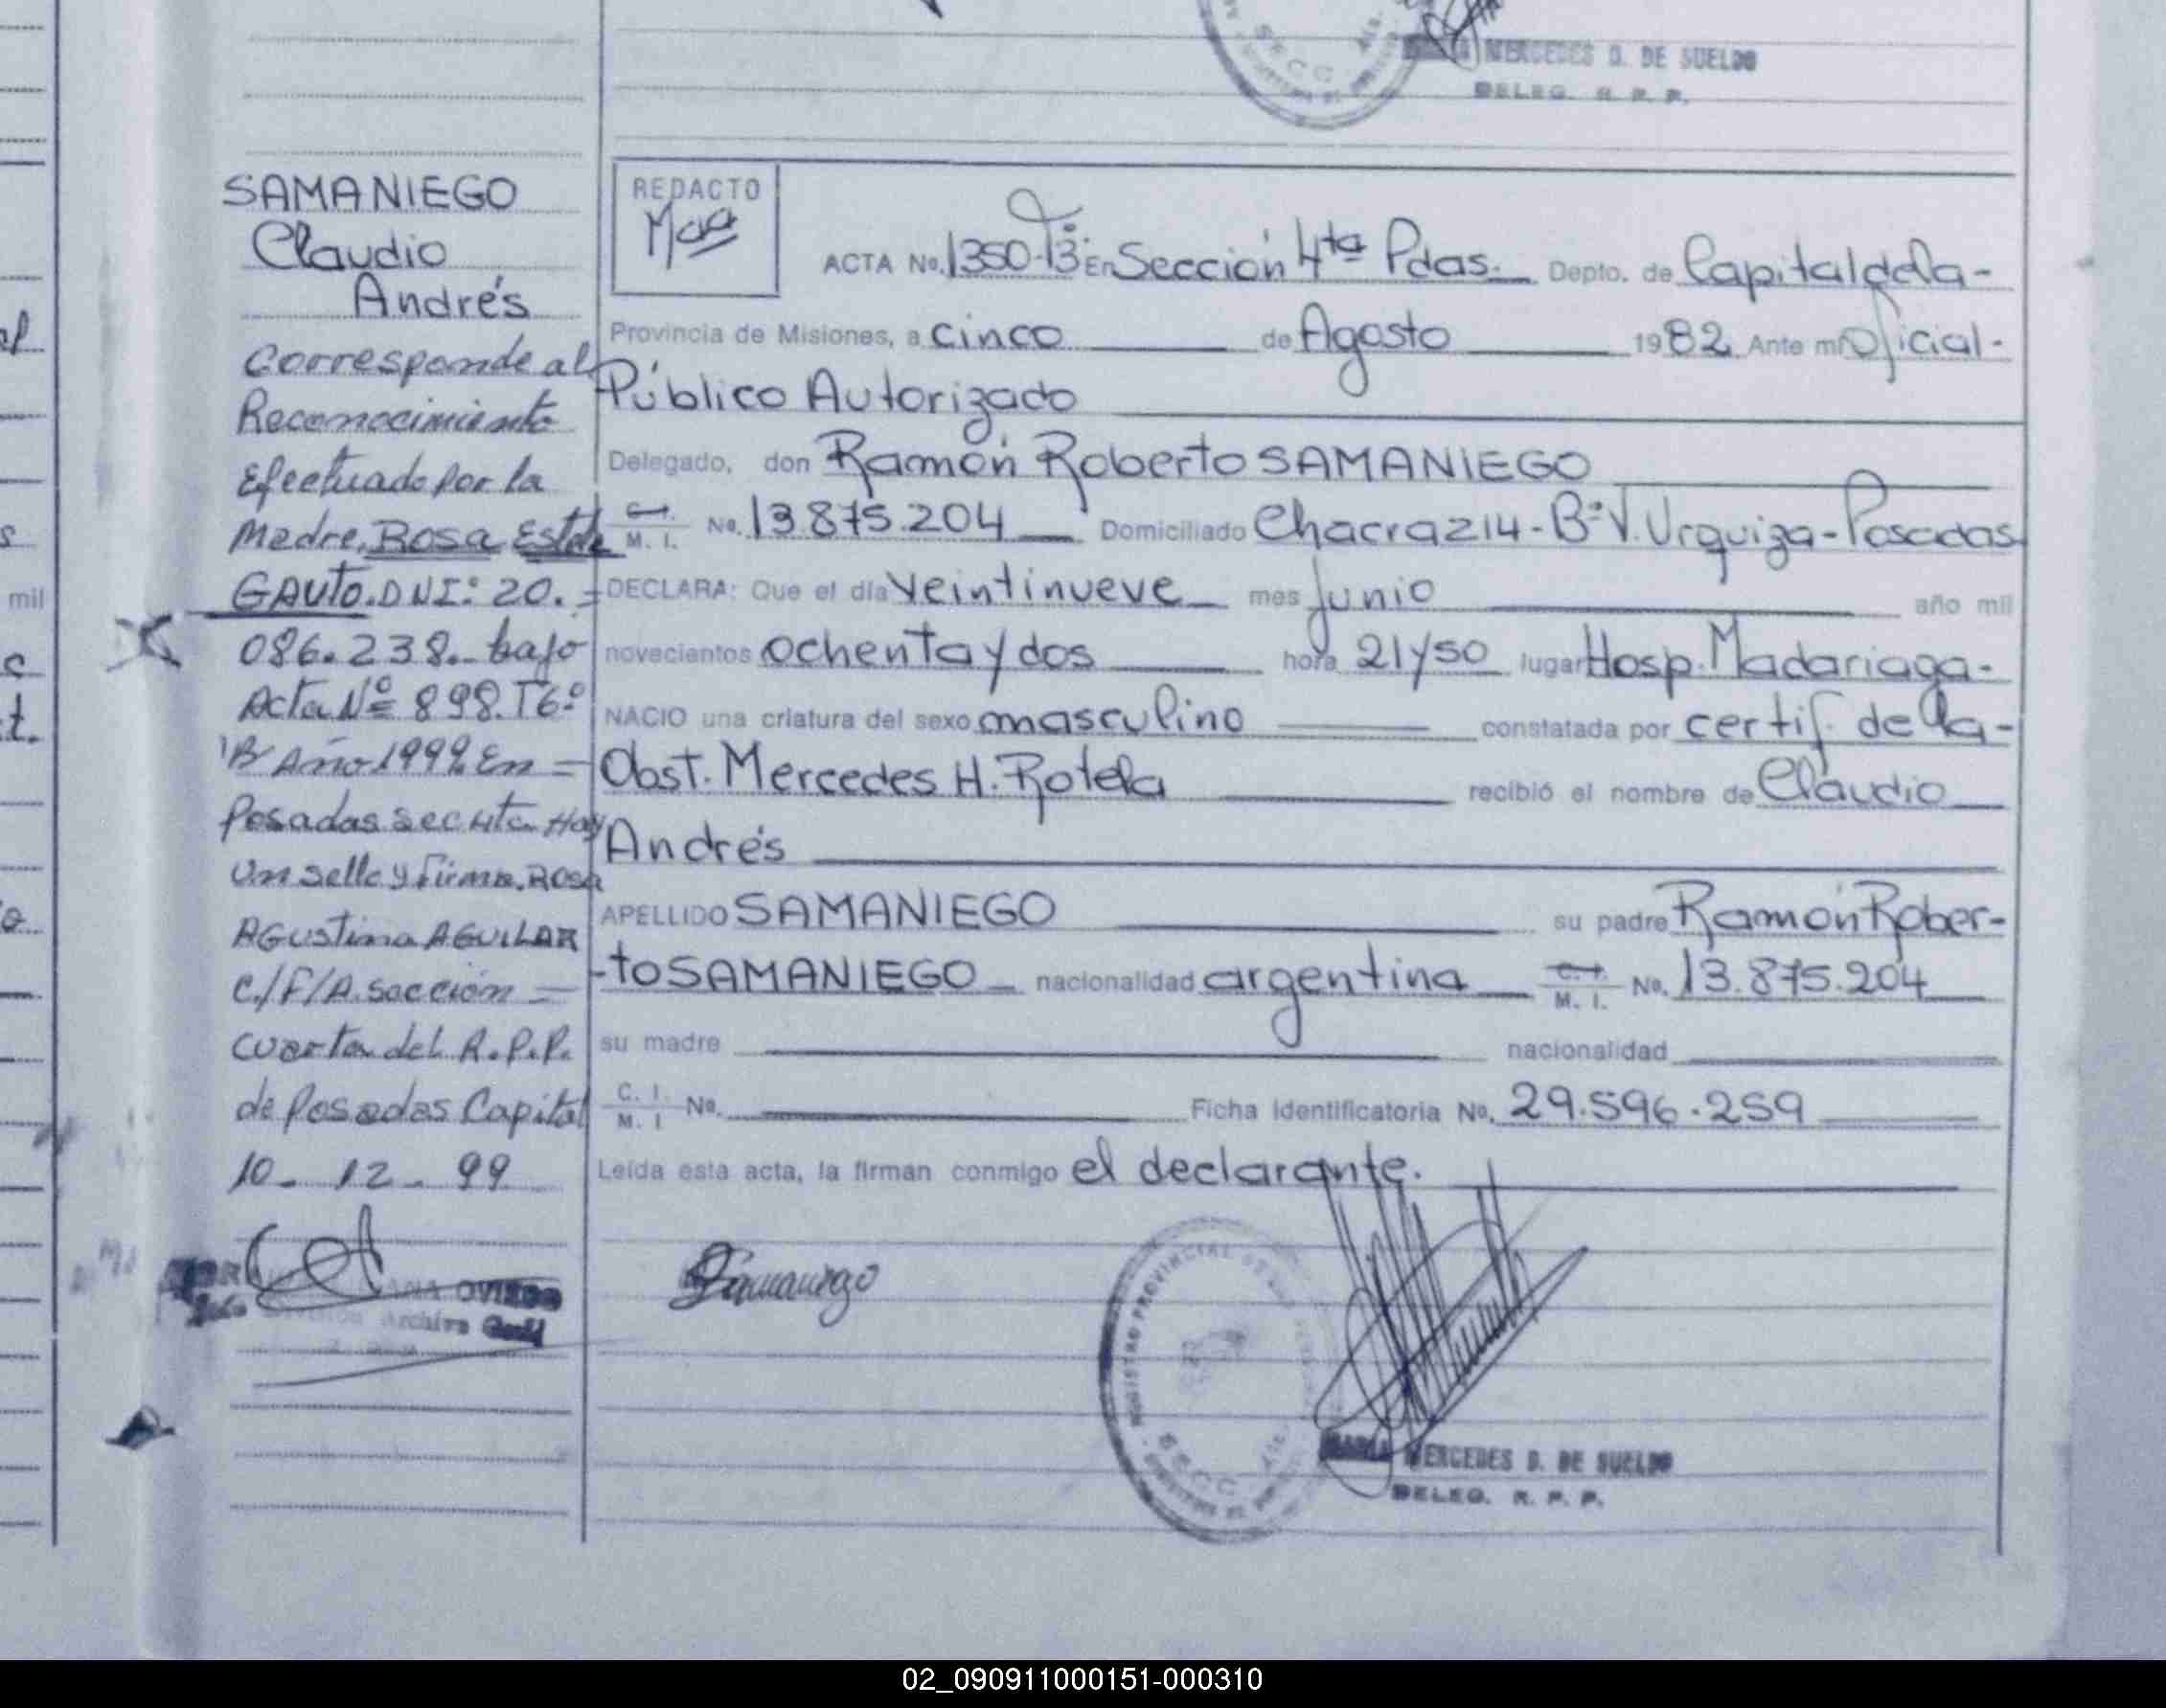 MERCEDES D. DE SUELDO
DELEG. R. P. P.
SAMANIEGO
Claudio
Andrés
Corresponde al
Reconocimiento
Efectuado por la
Madre, Rosa Estela
GAUTO. D N I: 20. =
086.238.- bajo
Acta Nº 898. T6º
Año 1999. En =
Posadas Sec 4ta Hay
Un sello y firma. Rosa
Agustina AGUILAR
C/F/A. sección =
cuarta del R.P.P.
de Posadas Capital
10 - 12 - 99
OVIEDO
Archivo
REDACTO
ACTA No. 1350-T3º En Sección 4ta Pdas. Depto. de Capital de la -
Provincia de Misiones, a cinco de Agosto 1982 Ante mí Oficial -
Público Autorizado
Delegado, don Ramón Roberto SAMANIEGO
C. I. / M. I. No. 13.875.204 Domiciliado Chacra 214 - Bº V. Urquiza - Posadas
DECLARA: Que el día veintinueve mes junio año mil
novecientos ochenta y dos hora 21 y 50 lugar Hosp. Madariaga -
NACIO una criatura del sexo masculino constatada por certif. de la -
Obst. Mercedes H. Rotela recibió el nombre de Claudio
Andrés
APELLIDO SAMANIEGO su padre Ramón Rober-
-to SAMANIEGO nacionalidad argentina C. I. / M. I. No. 13.875.204
su madre nacionalidad
C. I / M. I No. Ficha Identificatoria No. 29.596.259
Leída esta acta, la firman conmigo el declarante.
Samaniego
REGISTRO PROVINCIAL DE LAS
MARIA MERCEDES D. DE SUELDO
DELEG. R. P. P.
mil
02_090911000151-000310